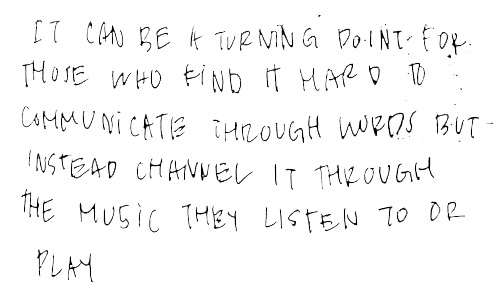 IT CAN BE A TURNING POINT FOR
THOSE WHO FIND IT HARD TO
COMMUNICATE THROUGH WORDS BUT
INSTEAD CHANNEL IT THROUGH
THE MUSIC THEY LISTEN TO OR
PLAY